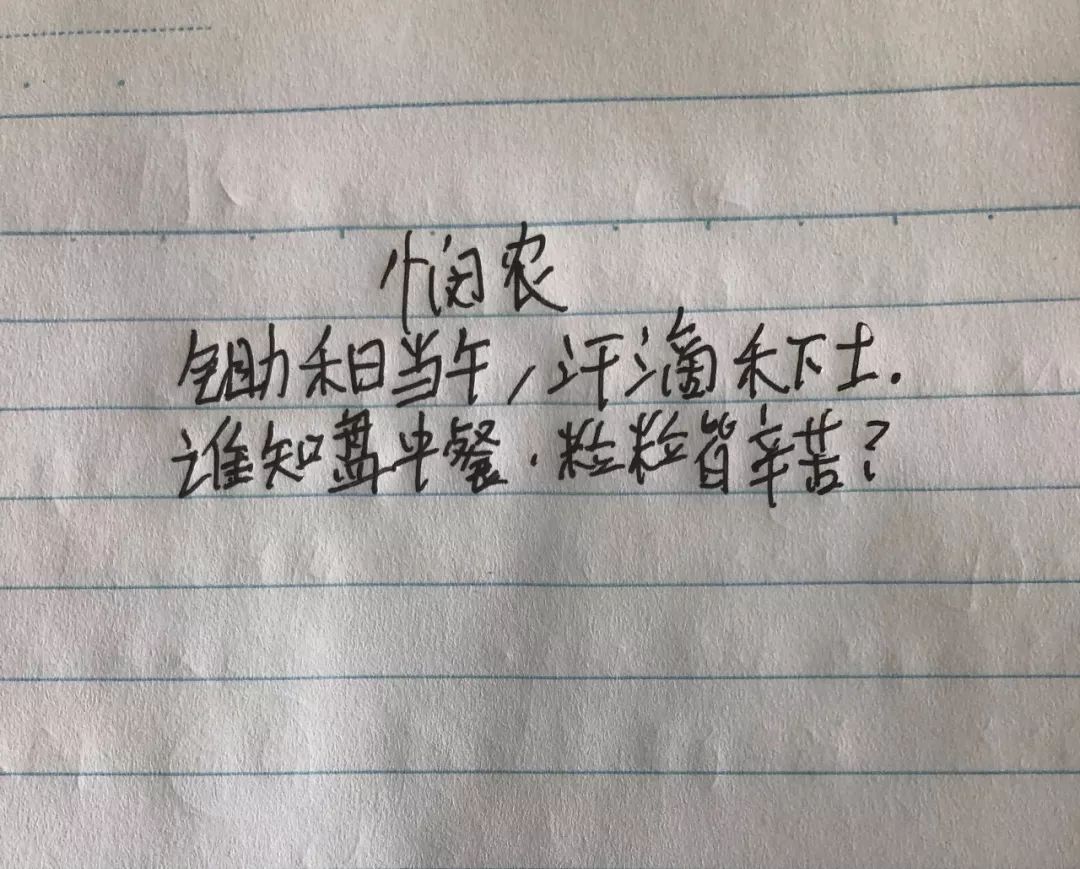 悯农
锄禾日当午,汗滴禾下土.
谁知盘中餐.粒粒皆辛苦?